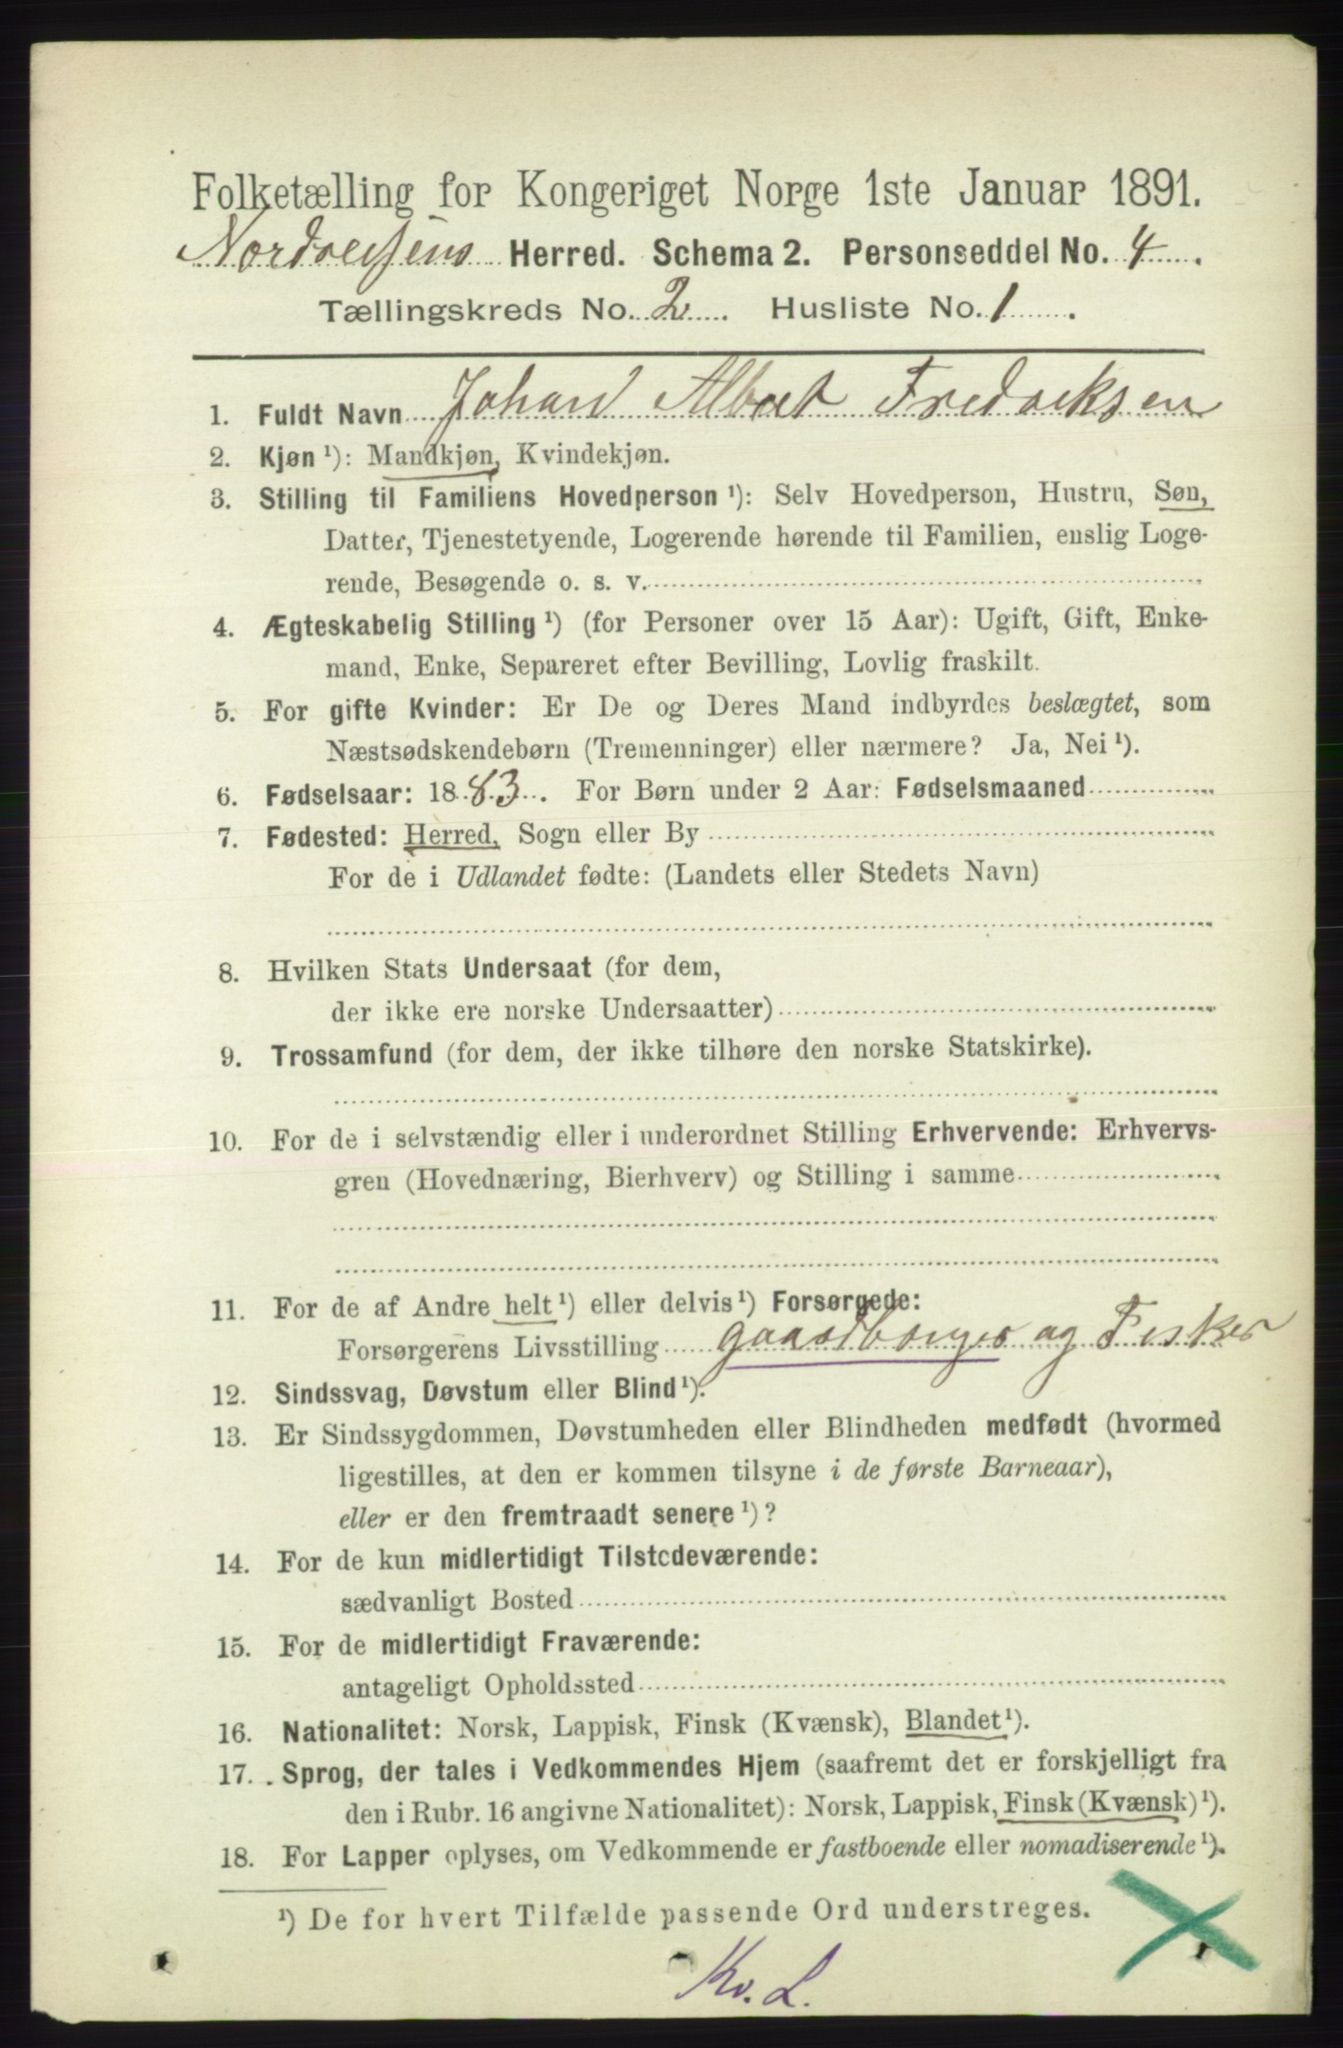 Folketælling for Kongeriget Norge 1ste Januar 1891.
Nordreisens Herred. Schema 2. Personseddel No. 4.
Tællingskreds No. 2. Husliste No. 1.
1. Fuldt Navn Johan Albert Fredriksen
2. Kjøn ¹): Mandkjøn, Kvindekjøn.
3. Stilling til Familiens Hovedperson ¹): Selv Hovedperson, Hustru, Søn,
Datter, Tjenestetyende, Logerende hørende til Familien, enslig Loge-
rende, Besøgende o. s. v.
4. Ægteskabelig Stilling ¹) (for Personer over 15 Aar): Ugift, Gift, Enke-
mand, Enke, Separeret efter Bevilling, Lovlig fraskilt.
5. For gifte Kvinder: Er De og Deres Mand indbyrdes beslægtet, som
Næstsødskendebørn (Tremenninger) eller nærmere? Ja, Nei ¹).
6. Fødselsaar: 1883. For Børn under 2 Aar: Fødselsmaaned
7. Fødested: Herred, Sogn eller By
For de i Udlandet fødte: (Landets eller Stedets Navn)
8. Hvilken Stats Undersaat (for dem,
der ikke ere norske Undersaatter)
9. Trossamfund (for dem, der ikke tilhøre den norske Statskirke).
10. For de i selvstændig eller i underordnet Stilling Erhvervende: Erhvervs-
gren (Hovednæring, Bierhverv) og Stilling i samme
11. For de af Andre helt ¹) eller delvis ¹) Forsørgede:
Forsørgerens Livsstilling gaardbruger og Fisker
12. Sindssvag, Døvstum eller Blind ¹).
13. Er Sindssygdommen, Døvstumheden eller Blindheden medfødt (hvormed
ligestilles, at den er kommen tilsyne i de første Barneaar),
eller er den fremtraadt senere ¹)?
14. For de kun midlertidigt Tilstedeværende:
sædvanligt Bosted
15. For de midlertidigt Fraværende:
antageligt Opholdssted
16. Nationalitet: Norsk, Lappisk, Finsk (Kvænsk), Blandet ¹).
17. Sprog, der tales i Vedkommendes Hjem (saafremt det er forskjelligt fra
den i Rubr. 16 angivne Nationalitet): Norsk, Lappisk, Finsk (Kvænsk) ¹).
18. For Lapper oplyses, om Vedkommende er fastboende eller nomadiserende ¹).
¹) De for hvert Tilfælde passende Ord understreges.
Kv. L.